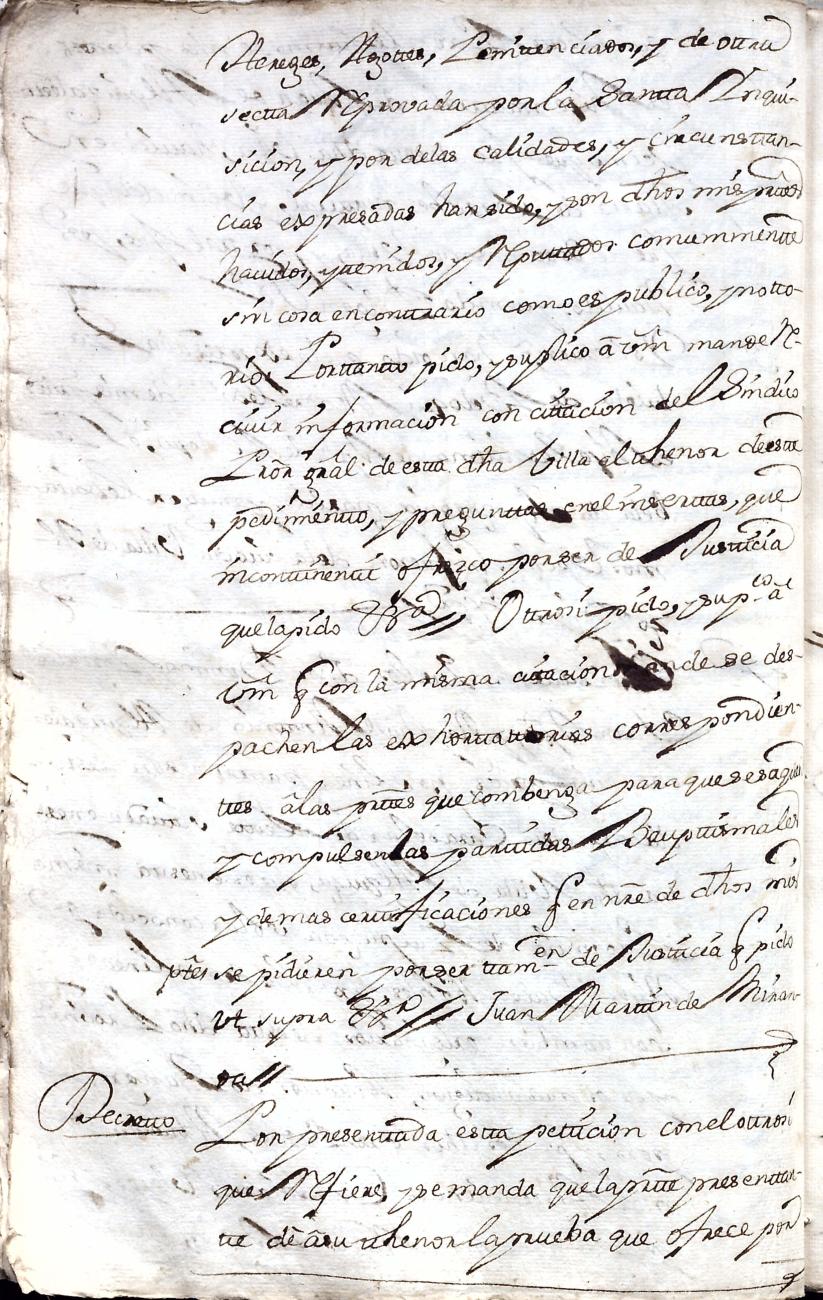 Hereges, Agottes, Penitenciados, y de ottra
secta Reprovada por la Santta Inqui-
sicion, y por de las calidades, y circunstan-
cias expresadas han sido, y son dhos mis prttes
havidos, y tenidos, y Reputtados comummentte
sin cosa en conttrario como es publico, y notto-
rio: Porttantto pido, y suplico â Vm mande Re-
civir informacion con cittacion del Sindico
Prõr gral de estta dha Villa el thenor de estte
pedimentto, y preguntas en el inserttas, que
incontinentti ofrezco por ser de Justicia
que la pido &ra// Ottrosi pido, y supco â
Vm q con la misma cittacion mande se des-
pachen las exhorttattorias correspondien-
ttes â las prttes que combenga para que se saquen
y compulsen las parttidas Baupttismales
y demas certtificaciones q en nre de dhos mis
pttes se pidieren por ser ttamen de Justicia q pido
ut supra &ra// Juan Marttin de Miran-
da//
Decretto
Por presenttada estta peticion con el ottrosi
que Refiere, y se manda que la prtte presenttan-
te dê â su thenor la prueba que ofrece por